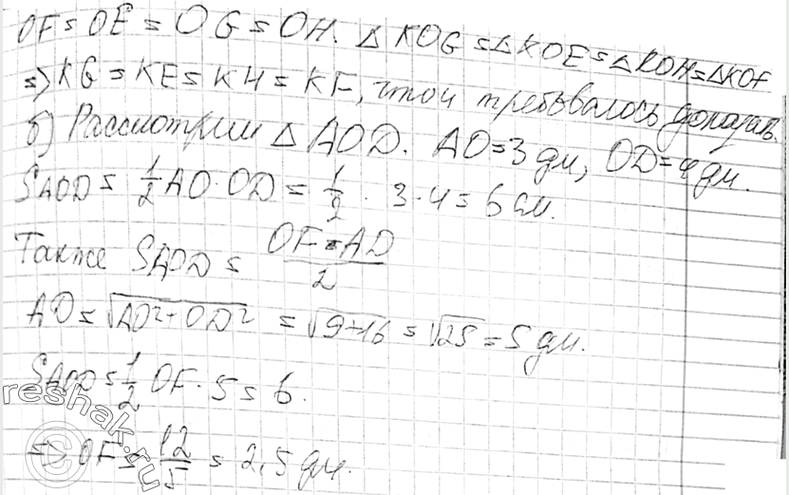 OF = OE = OG = OH. Δ KOG = Δ KOE = Δ KOH = Δ KOF
=> KG = KE = KH = KF, что и требовалось доказать.
б) Рассмотрим Δ AOD. AO = 3 дм, OD = 4 дм.
SAOD = 1/2 AO · OD = 1/2 · 3 · 4 = 6 см.
Также SAOD = OF · AD / 2
AD = √AO² + OD² = √9 + 16 = √25 = 5 дм.
SAOD = 1/2 OF · 5 = 6.
=> OF = 12/5 = 2,5 дм.
reshak.ru
©